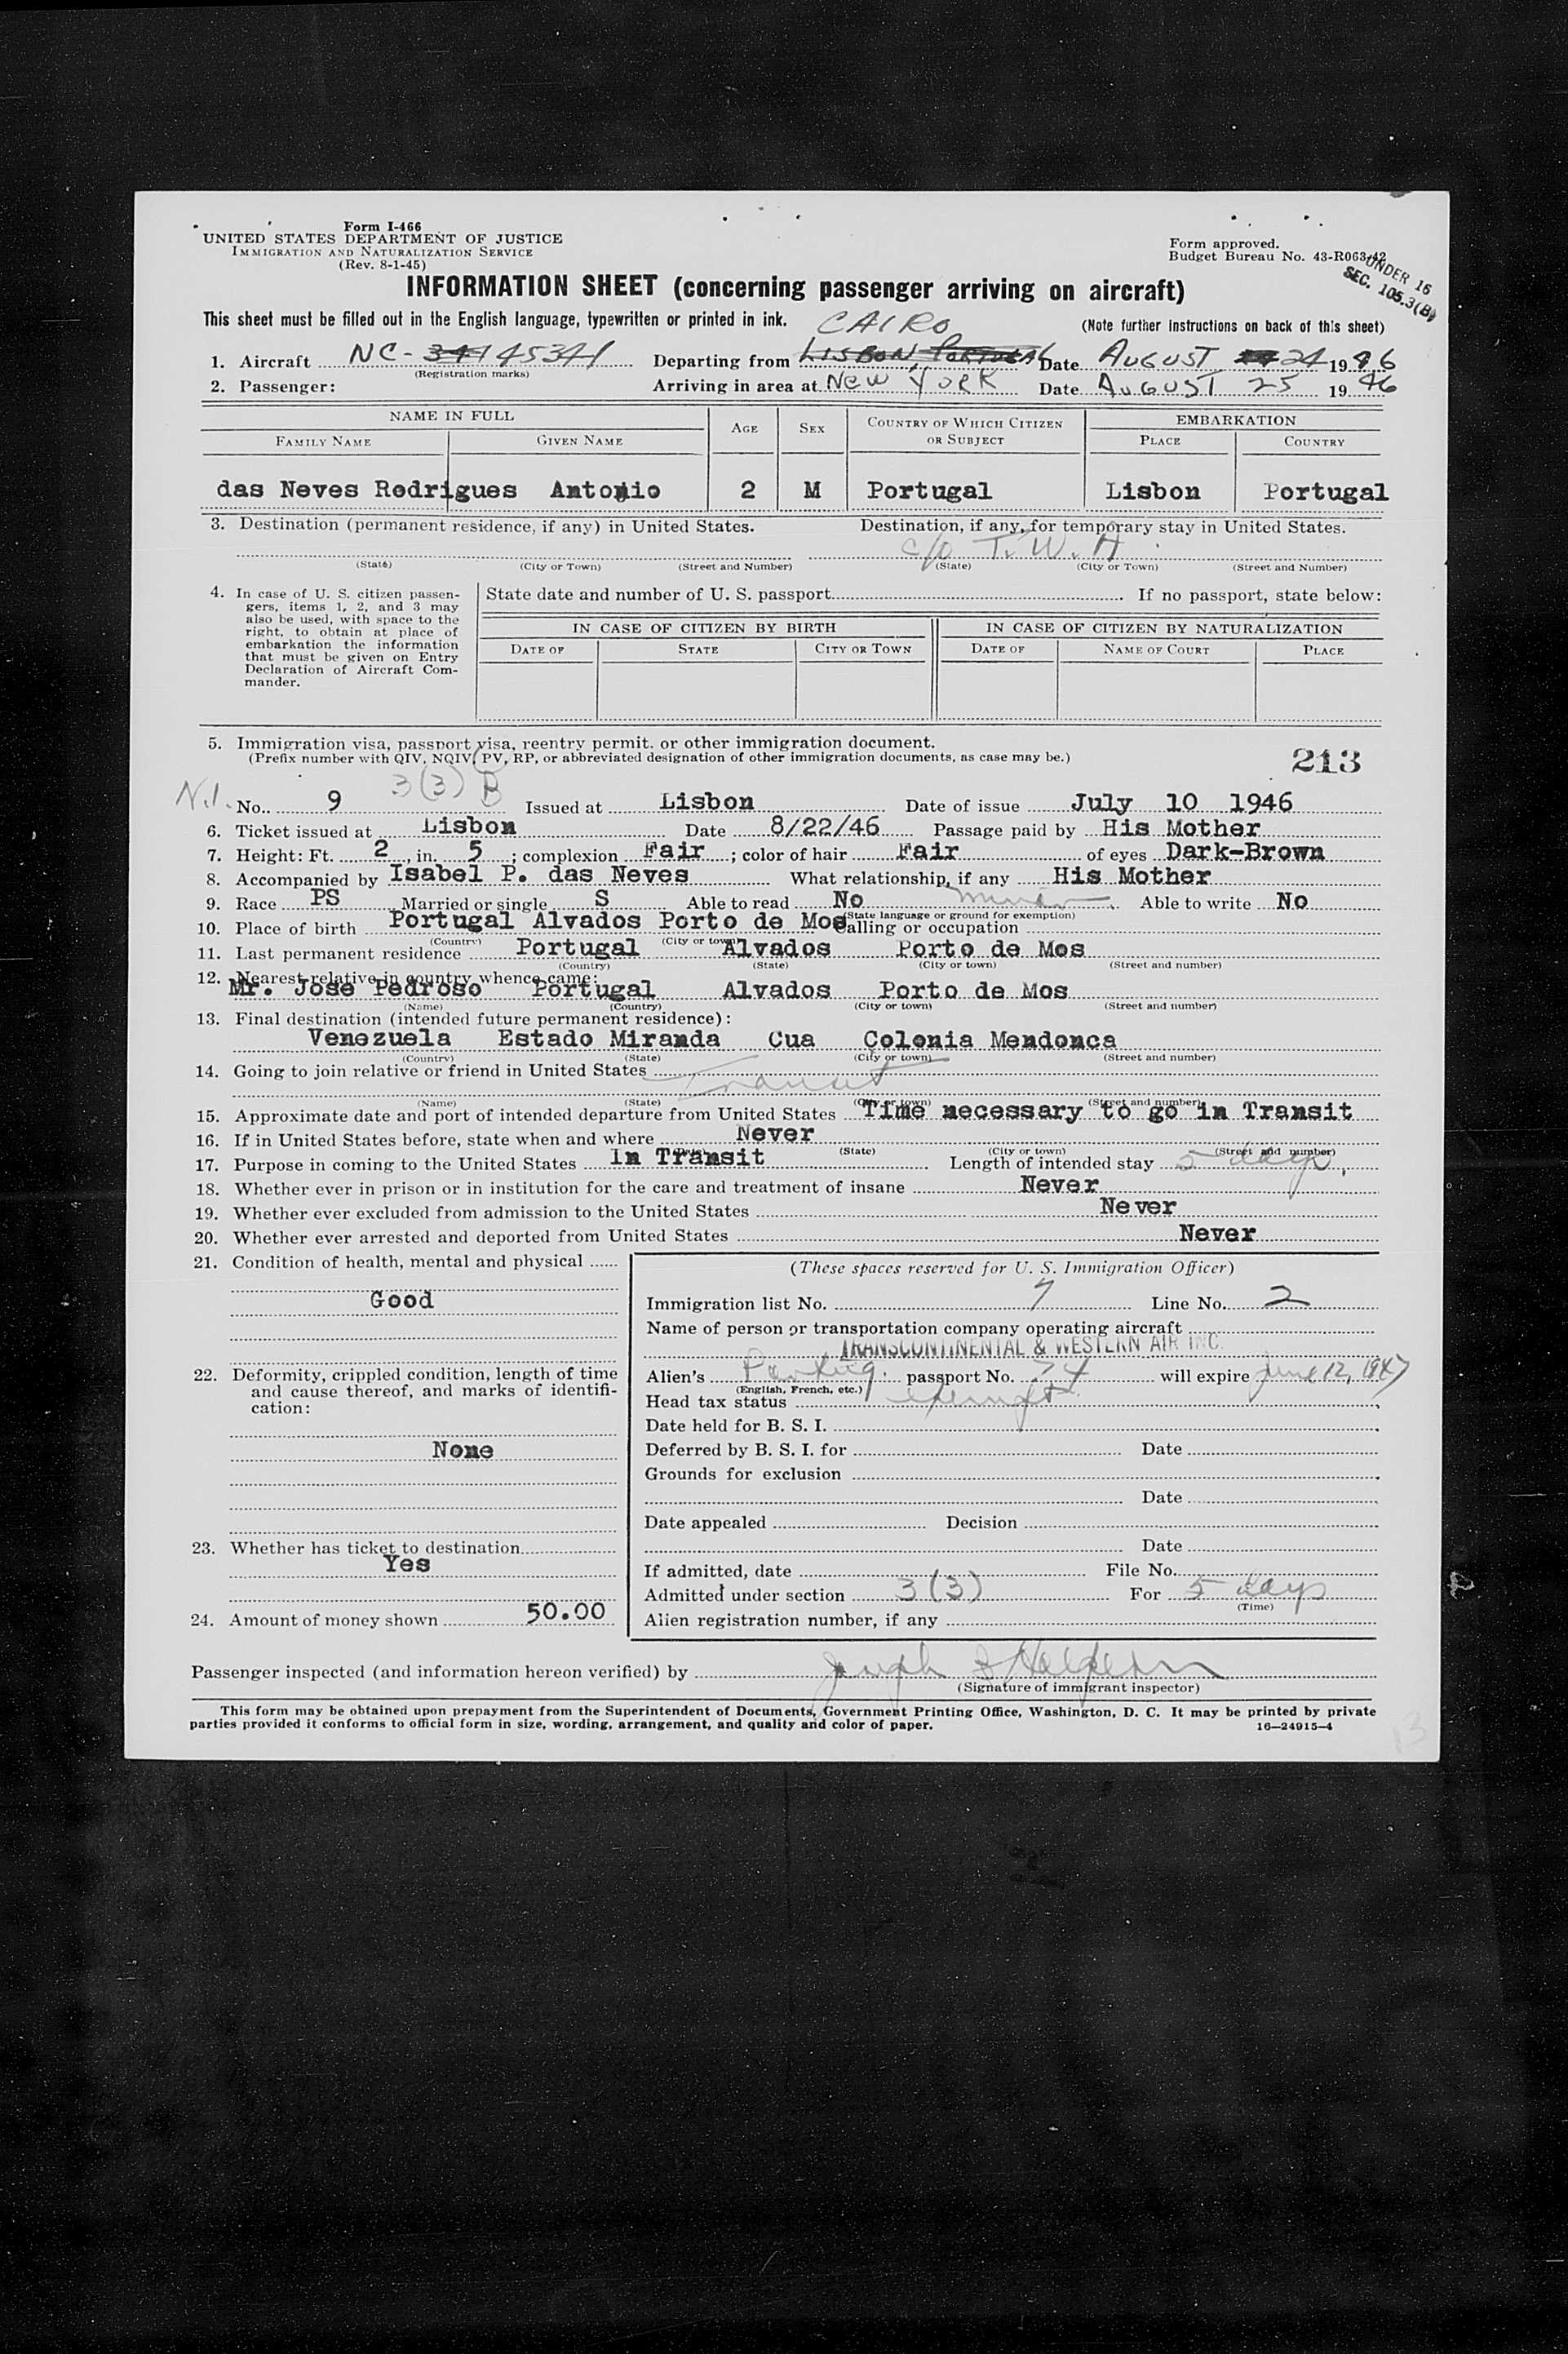 Form I-466
UNITED STATES DEPARTMENT OF JUSTICE
IMMIGRATION AND NATURALIZATION SERVICE
(Rev. 8-1-45)
Form approved.
Budget Bureau No. 43-R063-42
UNDER 16
SEC. 105.3(B)
INFORMATION SHEET (concerning passenger arriving on aircraft)
This sheet must be filled out in the English language, typewritten or printed in ink.
(Note further instructions on back of this sheet)
CAIRO
1. Aircraft NC- 45341 Departing from LISBON, PORTUGAL Date AUGUST 24 1946
(Registration marks)
2. Passenger: Arriving in area at NEW YORK Date AUGUST 25 1946
NAME IN FULL AGE SEX COUNTRY OF WHICH CITIZEN OR SUBJECT EMBARKATION
FAMILY NAME GIVEN NAME PLACE COUNTRY
das Neves Rodrigues Antonio 2 M Portugal Lisbon Portugal
3. Destination (permanent residence, if any) in United States. Destination, if any, for temporary stay in United States.
c/o T.W.A
(State) (City or Town) (Street and Number) (State) (City or Town) (Street and Number)
4. In case of U. S. citizen passengers, items 1, 2, and 3 may also be used, with space to the right, to obtain at place of embarkation the information that must be given on Entry Declaration of Aircraft Commander.
State date and number of U. S. passport If no passport, state below:
IN CASE OF CITIZEN BY BIRTH IN CASE OF CITIZEN BY NATURALIZATION
DATE OF STATE CITY OR TOWN DATE OF NAME OF COURT PLACE
5. Immigration visa, passport visa, reentry permit, or other immigration document.
(Prefix number with QIV, NQIV, PV, RP, or abbreviated designation of other immigration documents, as case may be.)
213
3(3) B
No. 9 Issued at Lisbon Date of issue July 10 1946
6. Ticket issued at Lisbon Date 8/22/46 Passage paid by His Mother
7. Height: Ft. 2, in. 5; complexion Fair; color of hair Fair of eyes Dark-Brown
8. Accompanied by Isabel P. das Neves What relationship, if any His Mother
9. Race PS Married or single S Able to read No Able to write No
(State language or ground for exemption)
10. Place of birth Portugal Alvados Porto de Mos Calling or occupation
(Country) (City or town)
11. Last permanent residence Portugal Alvados Porto de Mos
(Country) (State) (City or town) (Street and number)
12. Nearest relative in country whence came:
Mr. Jose Pedroso Portugal Alvados Porto de Mos
(Name) (Country) (City or town) (Street and number)
13. Final destination (intended future permanent residence):
Venezuela Estado Miranda Cua Colonia Mendonca
(Country) (State) (City or town) (Street and number)
14. Going to join relative or friend in United States
Transit
(Name) (State) (City or town) (Street and number)
15. Approximate date and port of intended departure from United States Time necessary to go in Transit
16. If in United States before, state when and where Never
(State) (City or town) (Street and number)
17. Purpose in coming to the United States In Transit Length of intended stay 5 days,
18. Whether ever in prison or in institution for the care and treatment of insane Never
19. Whether ever excluded from admission to the United States Never
20. Whether ever arrested and deported from United States Never
21. Condition of health, mental and physical
Good
22. Deformity, crippled condition, length of time and cause thereof, and marks of identification:
None
23. Whether has ticket to destination
Yes
24. Amount of money shown 50.00
(These spaces reserved for U. S. Immigration Officer)
Immigration list No. 7 Line No. 2
Name of person or transportation company operating aircraft
TRANSCONTINENTAL & WESTERN AIR INC.
Alien's passport No. 74 will expire June 12, 1947
(English, French, etc.)
Head tax status exempt
Date held for B. S. I.
Deferred by B. S. I. for Date
Grounds for exclusion
Date
Date appealed Decision
Date
If admitted, date File No.
Admitted under section 3(3) For 5 days
(Time)
Alien registration number, if any
Passenger inspected (and information hereon verified) by
(Signature of immigrant inspector)
This form may be obtained upon prepayment from the Superintendent of Documents, Government Printing Office, Washington, D. C. It may be printed by private
parties provided it conforms to official form in size, wording, arrangement, and quality and color of paper.
16—24915-4